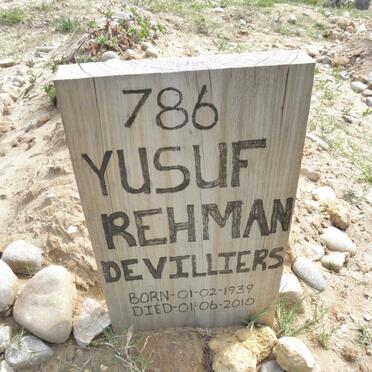 786
YUSUF
REHMAN
DEVILLIERS
BORN-01-02-1939
DIED-01-06-2010